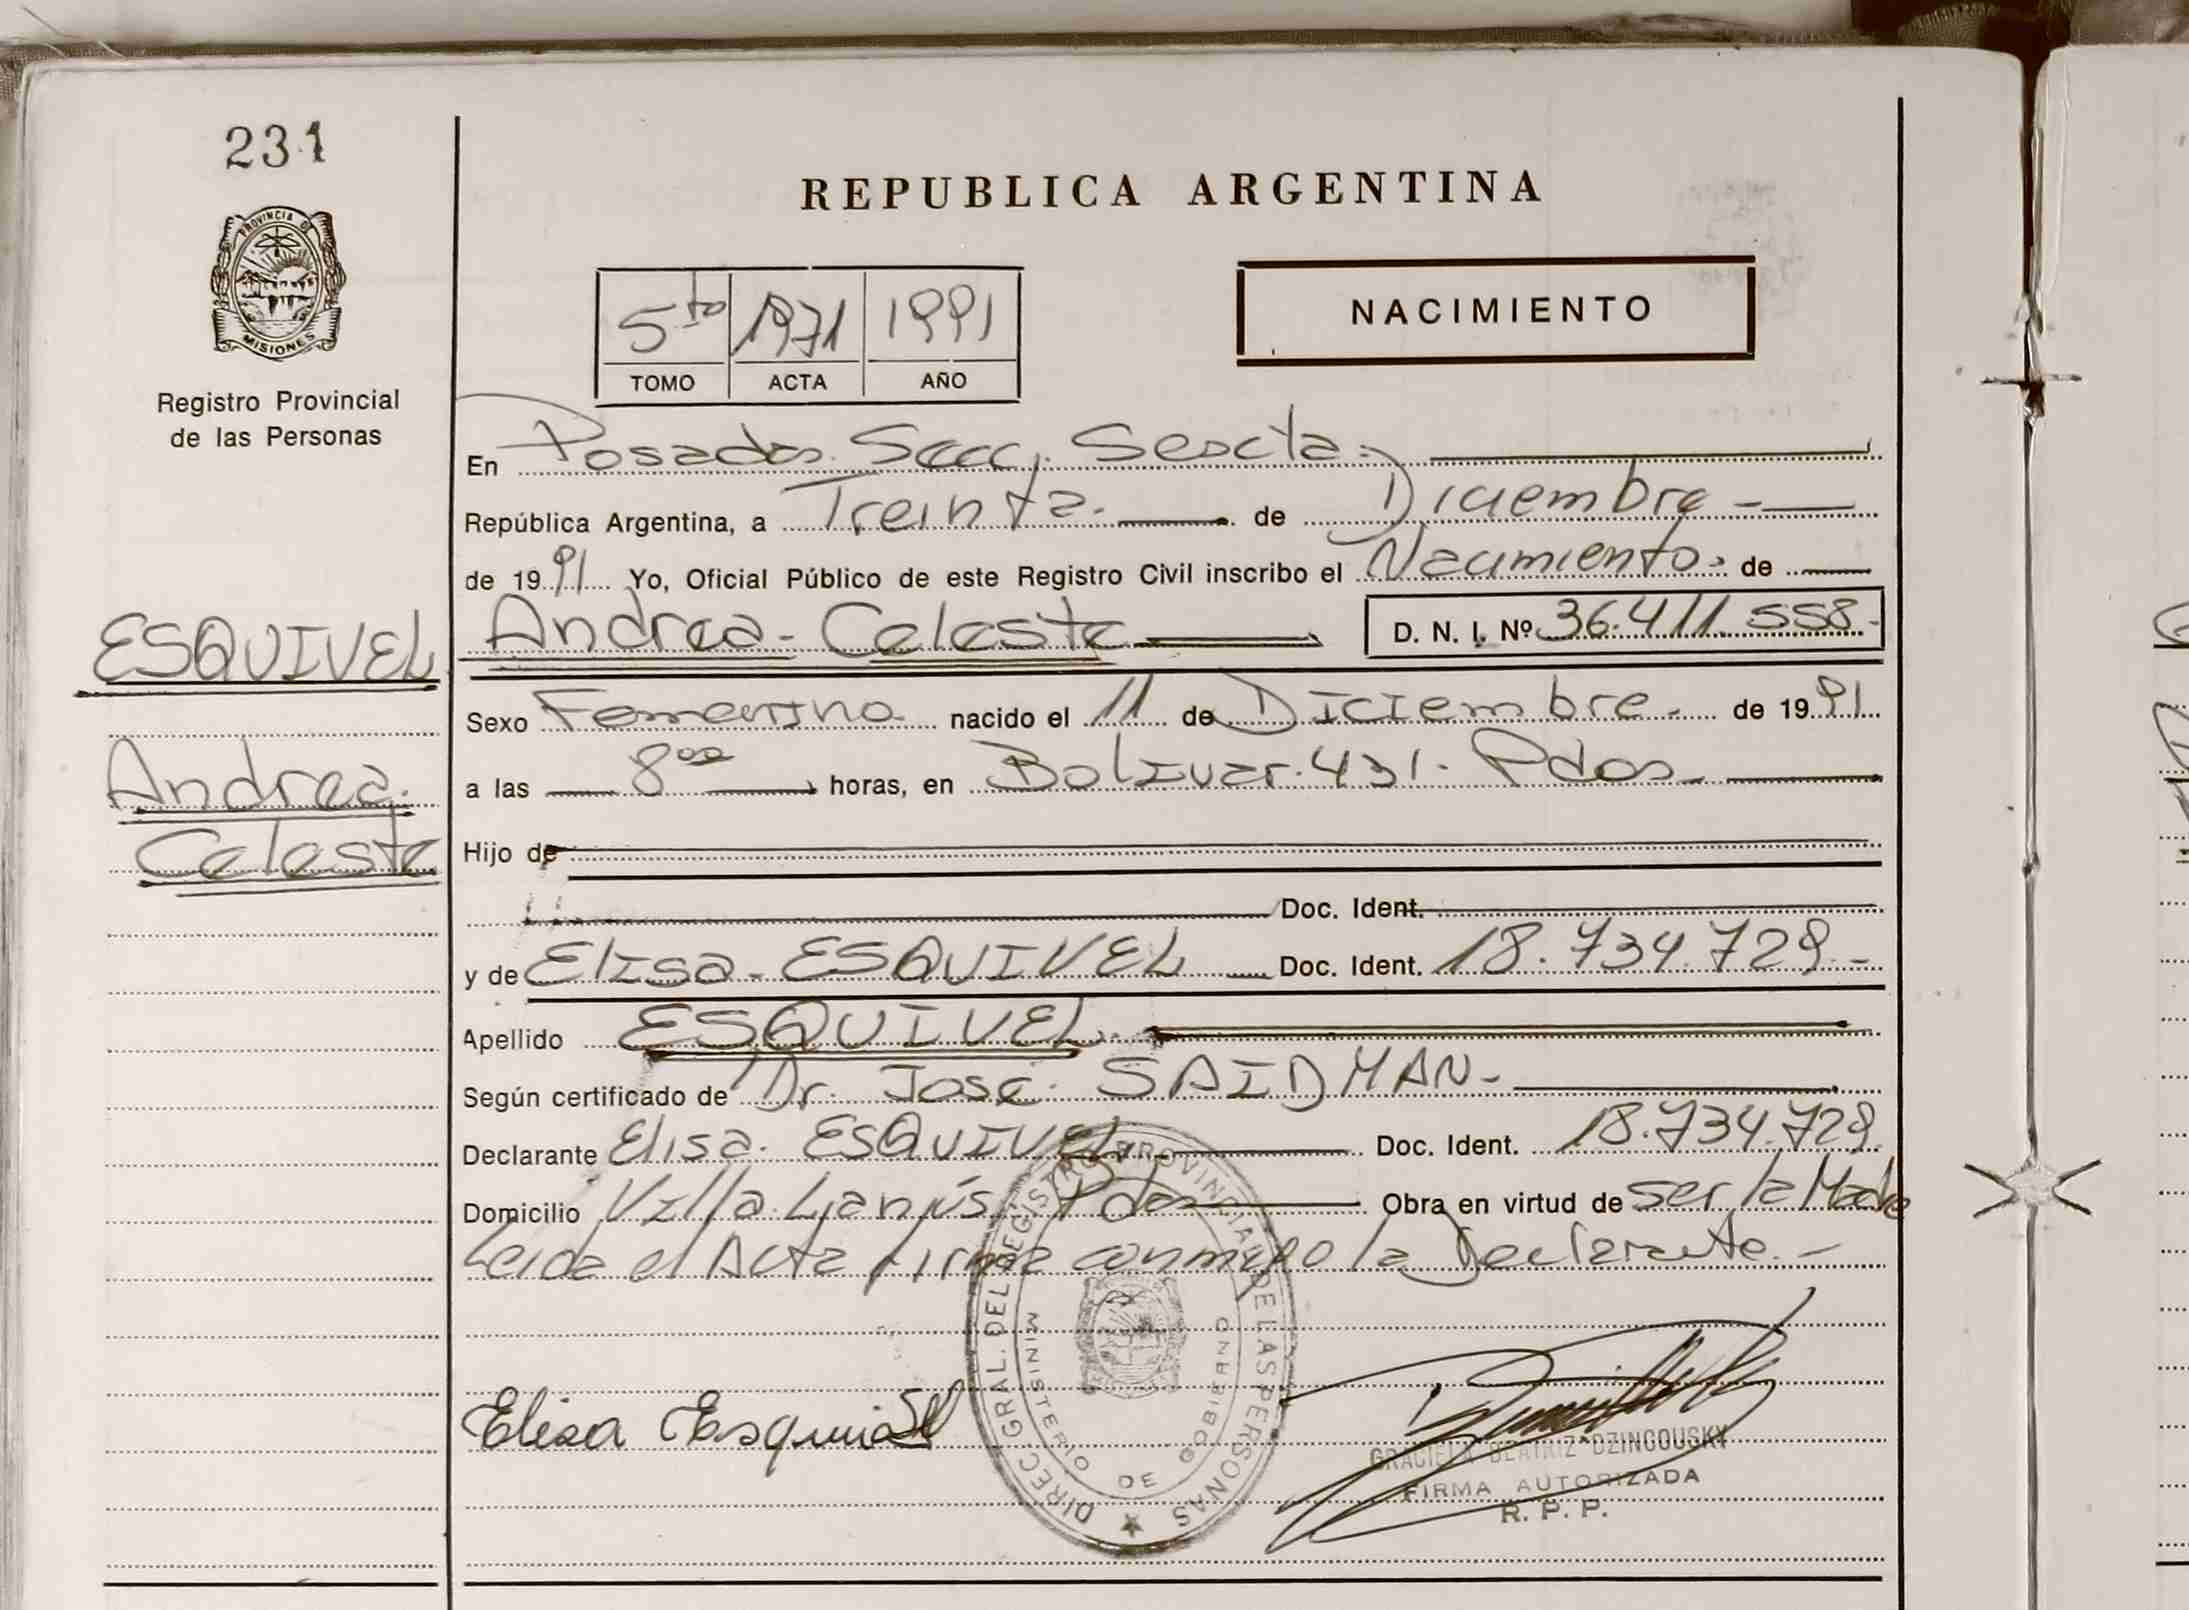 231
PROVINCIA DE
MISIONES
Registro Provincial
de las Personas
REPUBLICA ARGENTINA
5to 1971 1991
TOMO ACTA AÑO
NACIMIENTO
En Posadas. Secc. Sexcta.
República Argentina, a Treinta. de Diciembre -
de 1991 Yo, Oficial Público de este Registro Civil inscribo el Nacimiento. de
ESQUIVEL
Andrea - Celeste D. N. I. Nº 36.411.558.-
Sexo Femenino nacido el 11 de Diciembre. de 1991
Andrea.
a las 8 horas, en Bolivar. 431. Pdas.
Celeste
Hijo de
Doc. Ident.
y de Elisa - ESQUIVEL Doc. Ident. 18.734.729 -
Apellido ESQUIVEL
Según certificado de Dr. José. SAIDMAN -
Declarante Elisa. ESQUIVEL Doc. Ident. 18.734.729.
Domicilio Villa Lanús Pdas Obra en virtud de ser la Madre
Leida el Acta firma conmigo la Declarante. -
DIREC. GRAL. DEL REGISTRO PROVINCIAL DE LAS PERSONAS
MINISTERIO DE GOBIERNO
Elisa Esquivel
GRACIELA BEATRIZ DZINCOUSKY
FIRMA AUTORIZADA
R. P. P.